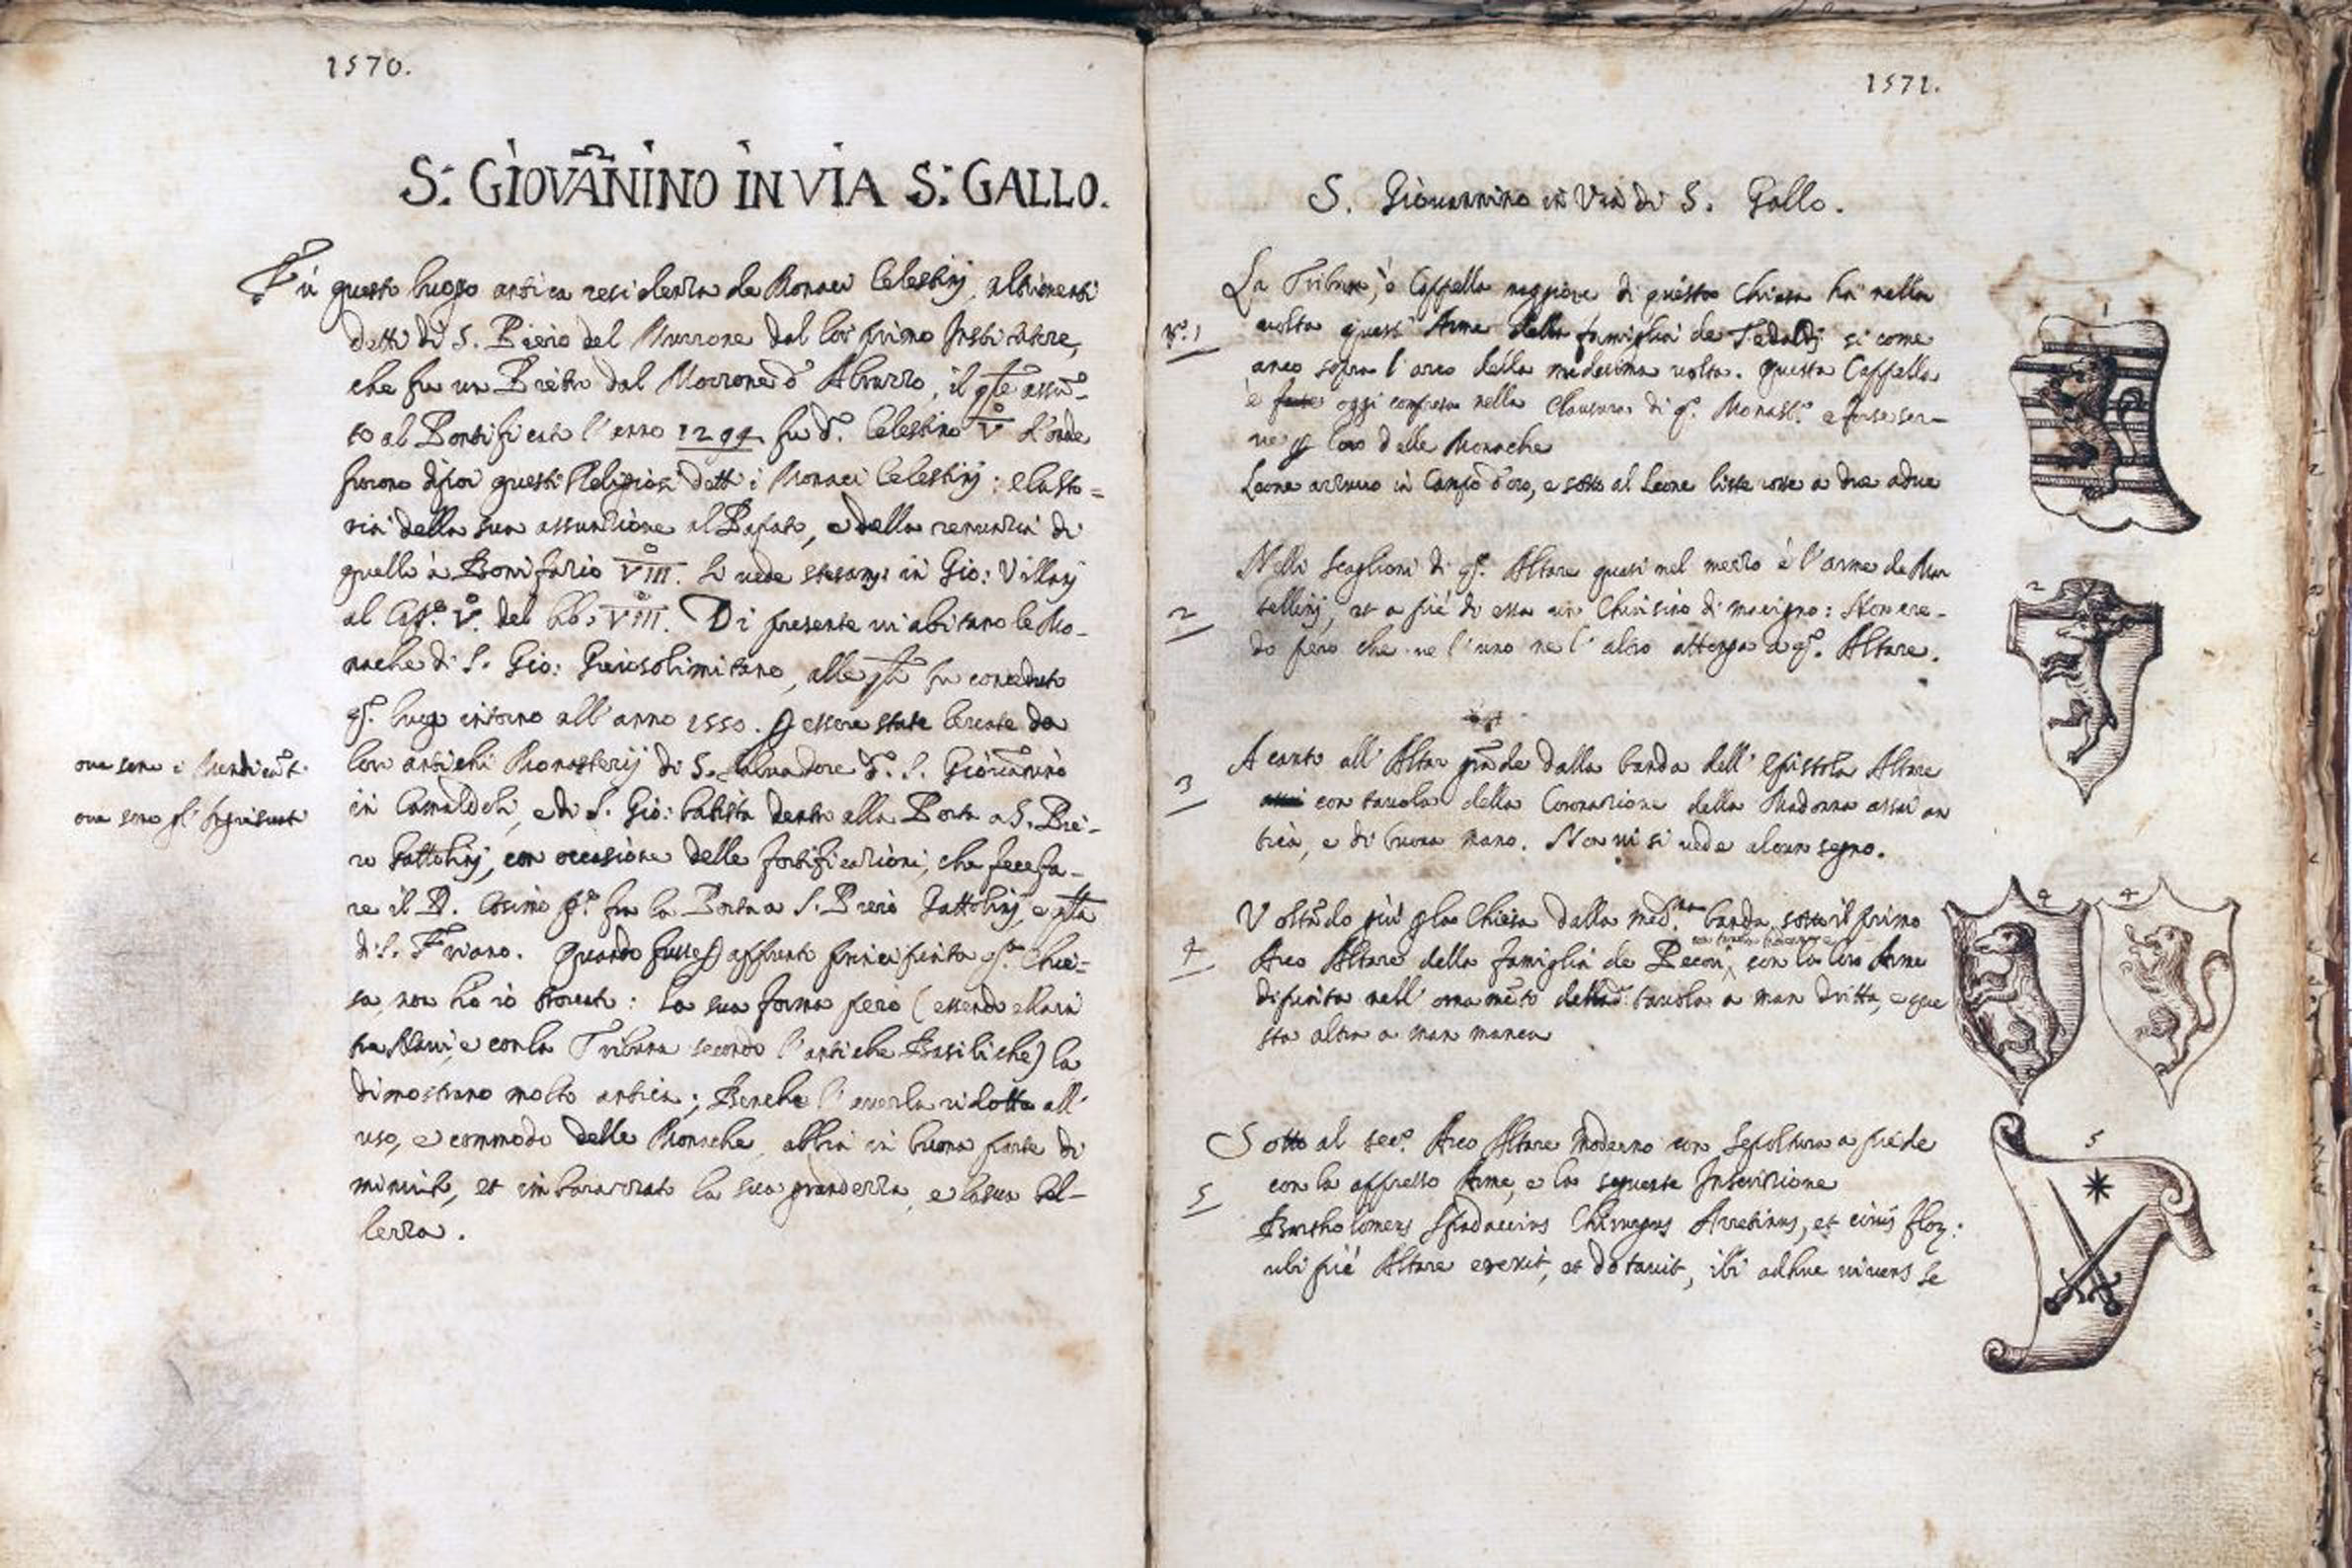 1570.
S: GIOVANINO IN VIA S: GALLO.
Fù questo luogo antica residenza de Monaci Celestinj, altrimenti
detti di S. Piero del Murrone dal lor primo Institutore,
che fu un Pietro dal Morrone d'Abruzzo, il qle assũ-
to al Pontificato l'anno 1294 fu d.º Celestino V.º d'onde
furono dipoi questi Religiosi detti i Monaci Celestinj: e la sto=
ria della sua assunzione al Papato, e della renunzia di
quello à Bonifazio VIII.º si vede in Gio: Villanj
al Cap.º V.º del lib.º VIII. Di presente vi abitano le Mo-
nache di S. Gio: Gierosolimitano, alle qli fu conceduto
q.º luogo intorno all'anno 1550. p essere state levate da
ove sono i
loro antichi Monasterij di S. Salvadore d.º S. Giovanino
ove sono gl'
in Camaldoli, e di S. Gio: batista dentro alla Porta a S. Pie-
ro Gattolinj, con occasione delle fortificazioni, che fece fa-
re il D. Cosimo p.º fra la Porta a S. Piero Gattolinj, e qlla
di S. Friano. Quando fusse appunto principiata q.ª Chie=
sa, non ho io trovato: la sua forma però (essendo ella in
tre Navi, e con la Tribuna secondo l'antiche Basiliche) la
dimostrano molto antica; Benche l'averla ridotta all'
uso, e commodo delle Monache, abbia in buona parte di
minuito, et imbarazzato la sua grandezza, e la sua bel-
lezza.
1571.
S. Giovannino in Via di S. Gallo.
La Tribuna, ò Cappella maggiore di questa Chiesa ha nella
N.º 1 volta quest'Arme della famiglia de Tedaldj si come
anco sopra l'arco della medesima volta. Questa Cappella
è oggi compresa nella Clausura di q.º Monast.º e forse ser-
ve p Coro delle Monache
Leone azzurro in Campo d'oro, e sotto al Leone liste rosse a due a due
Nelli Scaglioni di q.º Altare quasi nel mezzo è l'arme de Mar
2 tellinj, et a piè di essa un Chiusino di macigno: Non cre-
do però che ne l'uno ne l'altro attenga a q.º Altare.
A canto all'Altar grãde dalla banda dell'Epistola Altare
3 con tavola della Coronazione della Madonna assai an
tica, e di buona mano. Non vi si vede alcun segno.
Voltãdo più p la Chiesa dalla med.ma banda, sotto il primo
4 Arco Altare della famiglia de Pecori, con la loro Arme
dipinta nell'ornamẽto della d.ª tavola a man dritta, e que
sta altra a man manca
Sotto al sec.º Arco Altare moderno con sepoltura a piede
con la appresso Arme, e la seguente Inscrizione
5 Bartholomeus Spadaccius Chirurgus Arretinus, et civis flor:
ubi piè Altare erexit, et dotavit, ibi adhuc vivens se
1
2
4
4
5